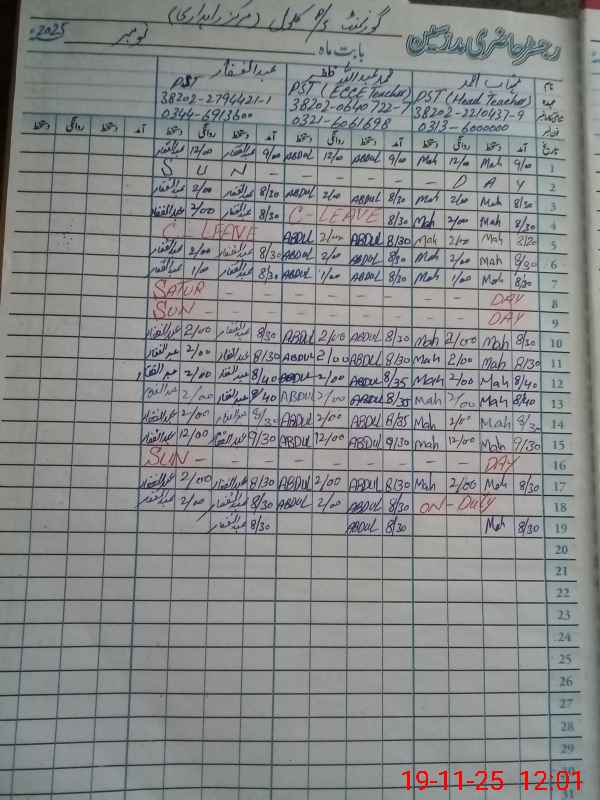 گورنمنٹ P/S کلول (مرکز راہداری)
رجسٹر حاضری مدرسین بابت ماہ نومبر 2025ء
نام عبدالغفار
عہدہ PST (Head Teacher) PST (ECCE Teacher) PST
38202-2210437-9 38202-0640722-7 38202-2794421-1
0313-6000000 0321-6061698 0344-6913600
تاریخ آمد دستخط روانگی دستخط آمد دستخط روانگی دستخط آمد دستخط روانگی دستخط آمد دستخط روانگی دستخط
1 9/00 Mah 12/00 Mah 9/00 ABDUL 12/00 ABDUL 9/00 عبدالغفار 12/00 عبدالغفار
2 S U N - - - - - - D A Y
3 8/30 Mah 2/00 Mah 8/30 ABDUL 2/00 ABDUL 8/30 عبدالغفار 2/00 عبدالغفار
4 8/30 Mah 2/00 Mah 8/30 C-LEAVE 8/30 عبدالغفار 2/00 عبدالغفار
5 8/20 Mah 2/00 Mah 8/30 ABDUL 2/00 ABDUL C-LEAVE
6 8/30 Mah 2/00 Mah 8/30 ABDUL 2/00 ABDUL 8/30 عبدالغفار 2/00 عبدالغفار
7 8/30 Mah 1/00 Mah 8/30 ABDUL 1/00 ABDUL 8/30 عبدالغفار 1/00 عبدالغفار
8 SATUR - - - - - - - - DAY
9 SUN - - - - - - - - DAY
10 8/30 Mah 2/00 Mah 8/20 ABDUL 2/00 ABDUL 8/30 عبدالغفار 2/00 عبدالغفار
11 8/30 Mah 2/00 Mah 8/30 ABDUL 2/00 ABDUL 8/30 عبدالغفار 2/00 عبدالغفار
12 8/40 Mah 2/00 Mah 8/35 ABDUL 2/00 ABDUL 8/40 عبدالغفار 2/00 عبدالغفار
13 8/40 Mah 2/00 Mah 8/35 ABDUL 2/00 ABDUL 8/40 عبدالغفار 2/00 عبدالغفار
14 8/30 Mah 2/00 Mah 8/35 ABDUL 2/00 ABDUL 8/30 عبدالغفار 2/00 عبدالغفار
15 9/30 Mah 12/00 Mah 9/30 ABDUL 12/00 ABDUL 9/30 عبدالغفار 12/00 عبدالغفار
16 SUN - - - - - - - - DAY
17 8/30 Mah 2/00 Mah 8/30 ABDUL 2/00 ABDUL 8/30 عبدالغفار 2/00 عبدالغفار
18 ON-Duty 8/30 ABDUL 2/00 ABDUL 8/30 عبدالغفار 2/00 عبدالغفار
19 8/30 Mah 8/30 ABDUL 8/30 عبدالغفار
20
21
22
23
24
25
26
27
28
29
30
31
19-11-25 12:01